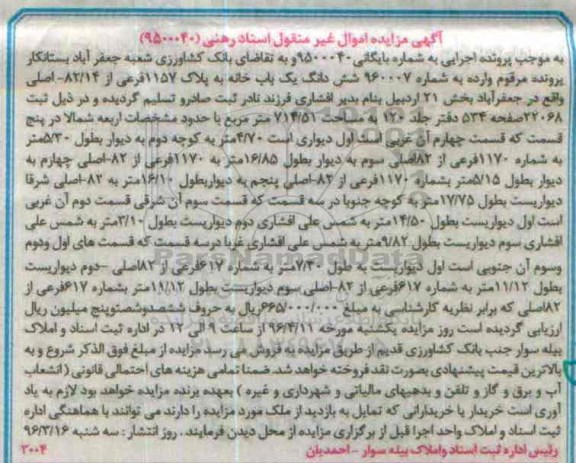 آگهی مزایده اموال غیر منقول اسناد رهنی (۹۵۰۰۰۴۰)
به موجب پرونده اجرایی به شماره بایگانی ۹۵۰۰۰۴۰ و به تقاضای بانک کشاورزی شعبه جعفر آباد بستانکار
پرونده مرقوم وارده به شماره ۹۶۰۰۰۷ شش دانگ یک باب خانه به پلاک ۱۱۵۷ فرعی از ۸۲/۱۴- اصلی
واقع در جعفرآباد بخش ۲۱ اردبیل بنام بدیر افشاری فرزند نادر ثبت صادرو تسلیم گردیده و در ذیل ثبت
۲۲۰۶۸ صفحه ۵۳۴ دفتر جلد ۱۲۰ به مساحت ۷۱۴/۵۱ متر مربع با حدود مشخصات اربعه شمالا در پنج
قسمت که قسمت چهارم آن غربی است اول دیواری است ۴/۷۰متر به کوچه دوم به دیوار بطول ۵/۳۰متر
به شماره ۱۱۷۰ فرعی از ۸۲اصلی سوم به دیوار بطول ۱۶/۸۵متر به ۱۱۷۰فرعی از ۸۲-اصلی چهارم به
دیوار بطول ۵/۱۵متر بشماره ۱۱۷۰فرعی از ۸۲-اصلی پنجم به دیواربطول ۱۶/۱۰متر به ۸۲-اصلی شرقا
دیواریست بطول ۱۷/۷۵متر به کوچه جنوبا در سه قسمت که قسمت سوم آن شرقی قسمت دوم آن غربی
است اول دیواریست بطول ۱۴/۵۰متر به شمس علی افشاری دوم دیواریست بطول ۳/۱۰متر به شمس علی
افشاری سوم دیواریست بطول ۹/۸۲متر به شمس علی افشاری غربا درسه قسمت که قسمت های اول ودوم
وسوم آن جنوبی است اول دیواریست به طول ۷/۴۰متر به شماره ۶۱۷فرعی از ۸۲اصلی -دوم دیواریست
بطول ۱۱/۱۲متر به شماره ۶۱۷فرعی از ۸۲-اصلی سوم دیواریست بطول ۱۱/۱۲متر بشماره ۶۱۷فرعی از
۸۲اصلی که برابر نظریه کارشناسی به مبلغ ۶۶۵/۰۰۰/۰۰۰ریال به حروف ششصدوشصتوپنج میلیون ریال
ارزیابی گردیده است روز مزایده یکشنبه مورخه ۹۶/۴/۱۱ از ساعت ۹ الی ۱۲ در اداره ثبت اسناد و املاک
بیله سوار جنب بانک کشاورزی قدیم از طریق مزایده به فروش می رسد مزایده از مبلغ فوق الذکر شروع و به
بالاترین قیمت پیشنهادی بصورت نقد فروخته خواهد شد. ضمنا تمامی هزینه های احتمالی قانونی ( انشعاب
آب و برق و گاز و تلفن و بدهیهای مالیاتی و شهرداری و غیره ) بعهده برنده مزایده خواهد بود لازم به یاد
آوری است خریدار یا خریدارانی که تمایل به بازدید از ملک مورد مزایده را دارند می توانند با هماهنگی اداره
ثبت اسناد و املاک واحد اجرا قبل از برگزاری مزایده از محل دیدن فرمایند. روز انتشار : سه شنبه ۹۶/۳/۱۶
رئیس اداره ثبت اسناد واملاک بیله سوار - احمدیان ۳۰۰۴
ParsNamadData